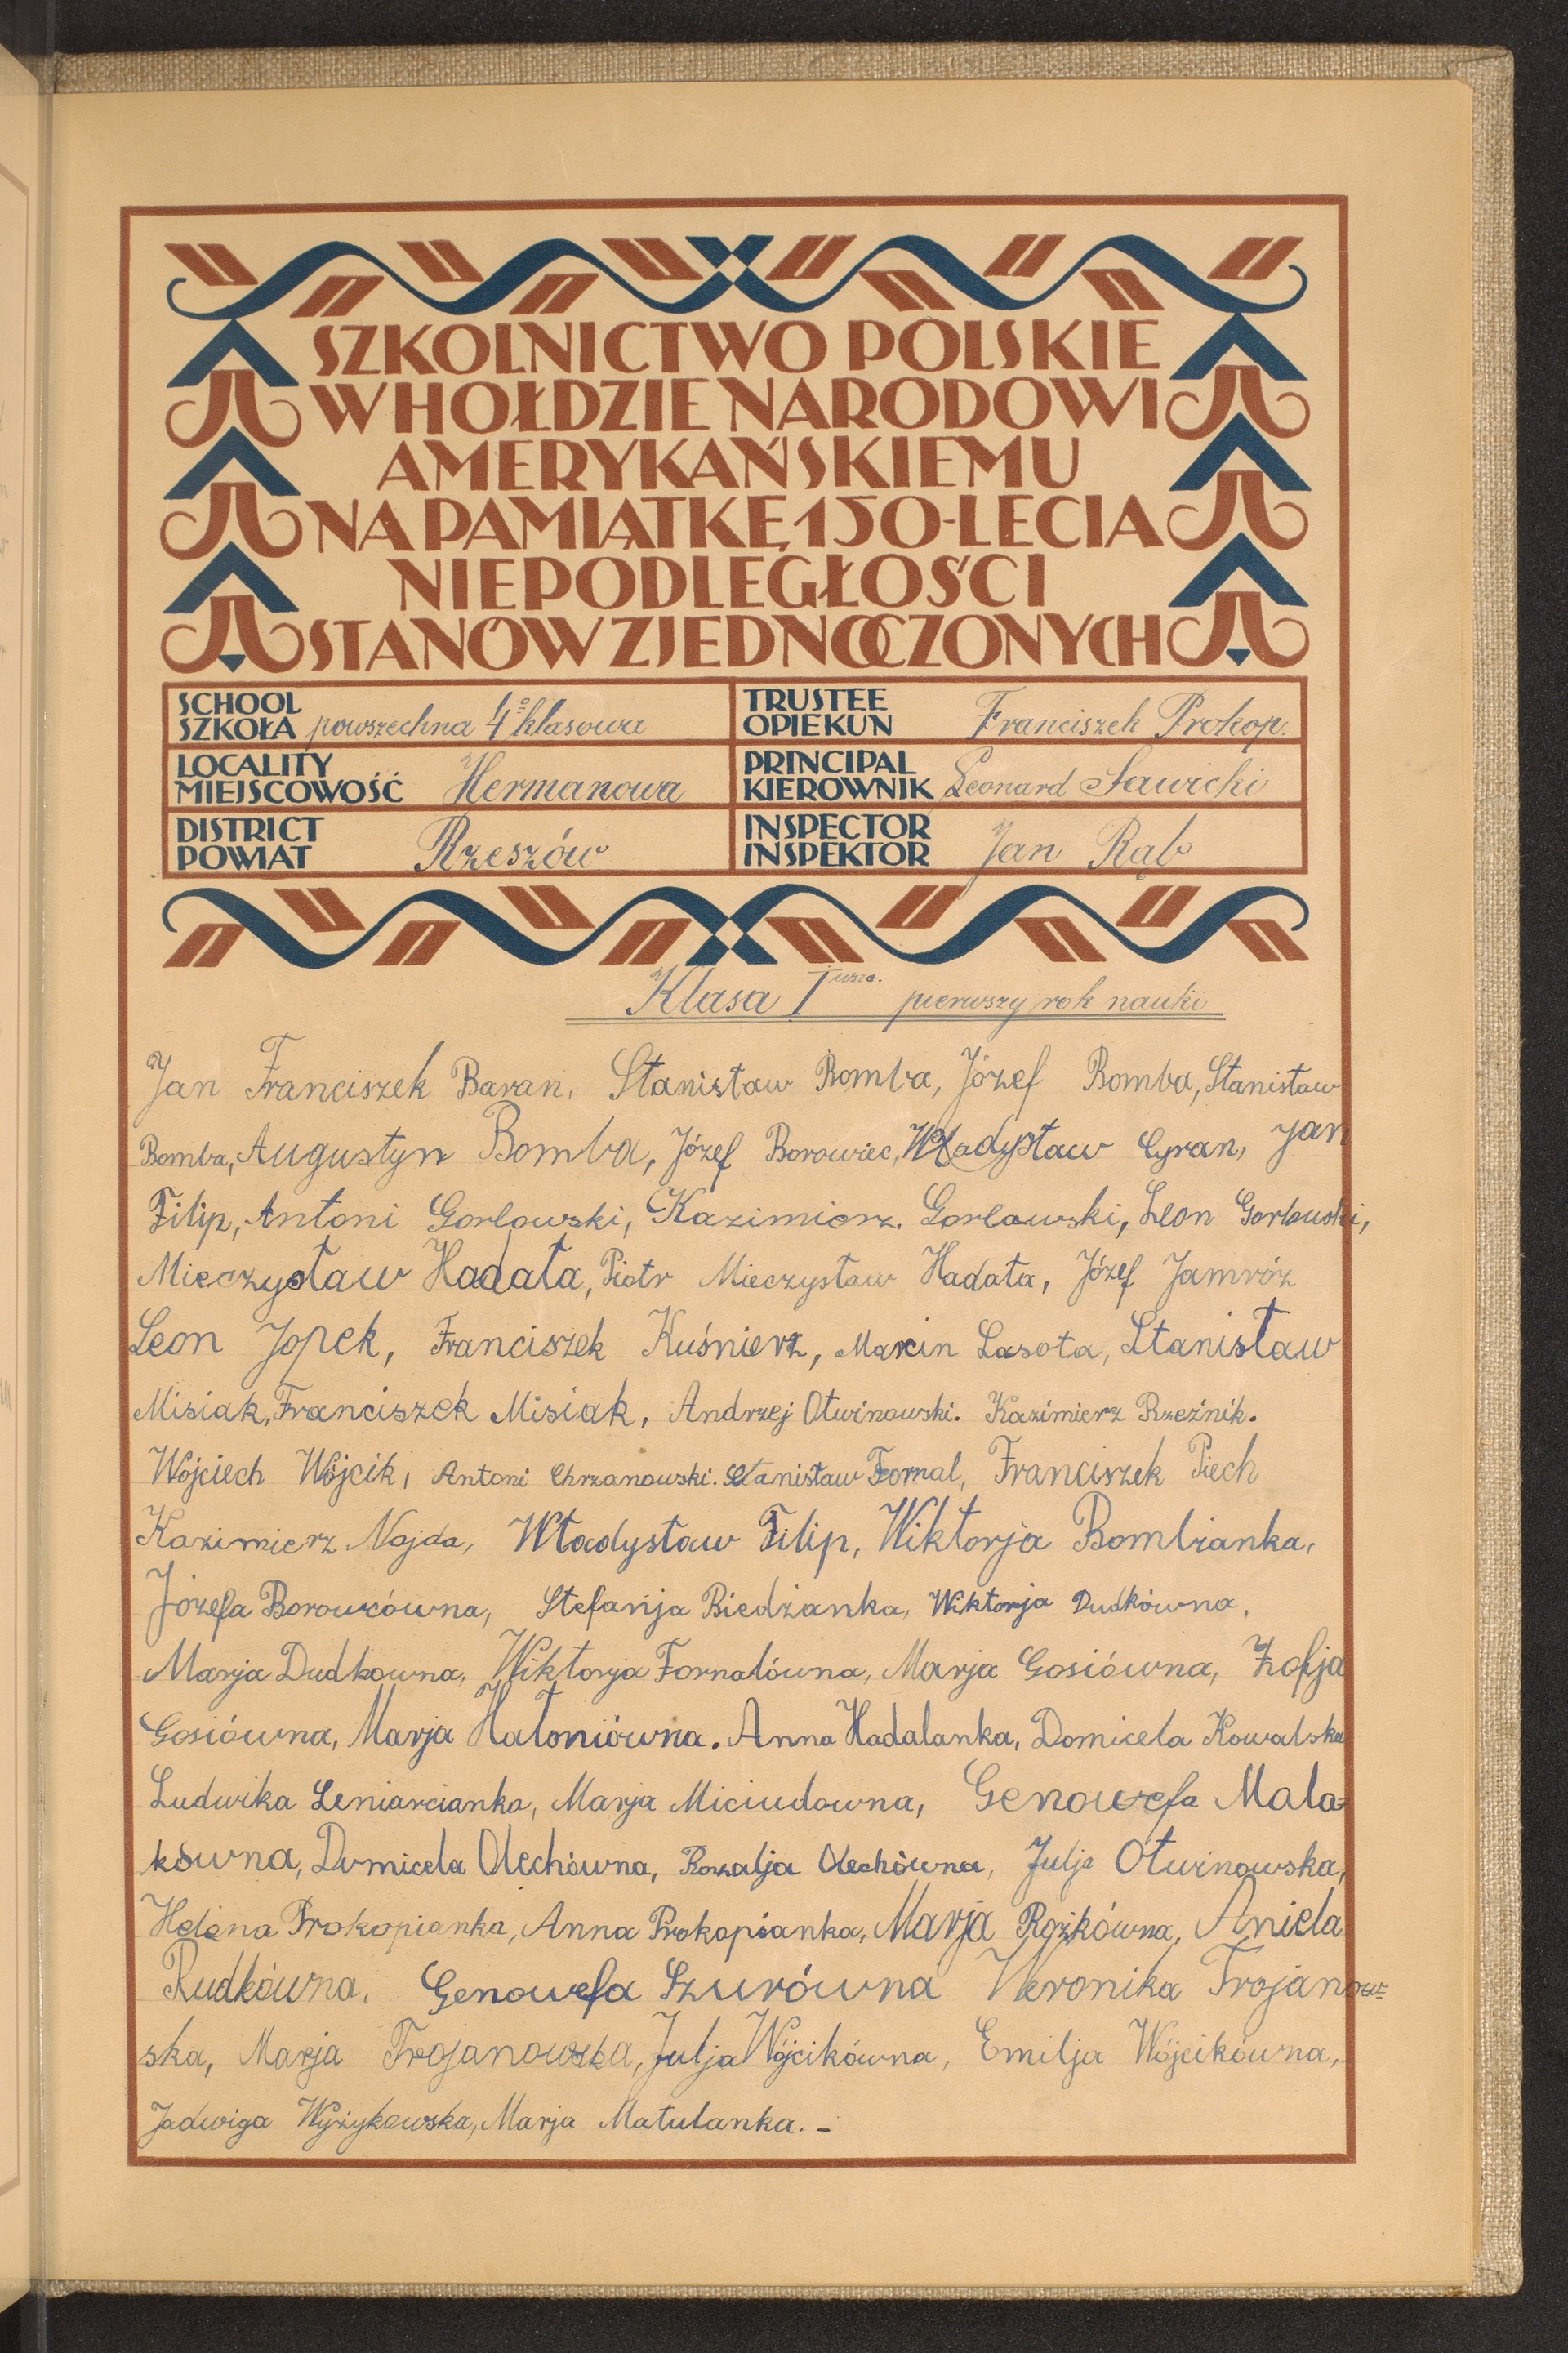 SZKOLNICTWO POLSKIE
W HOŁDZIE NARODOWI
AMERYKAŃSKIEMU
NA PAMIĄTKĘ 150-LECIA
NIEPODLEGŁOŚCI
STANÓW ZJEDNOCZONYCH
SCHOOL
SZKOŁA powszechna 4º klasowa
TRUSTEE
OPIEKUN Franciszek Prokop.
LOCALITY
MIEJSCOWOŚĆ Hermanowa
PRINCIPAL
KIEROWNIK Leonard Sawicki
DISTRICT
POWIAT Rzeszów
INSPECTOR
INSPEKTOR Jan Rąb
Klasa I wsza. pierwszy rok nauki
Jan Franciszek Baran, Stanisław Bomba, Józef Bomba, Stanisław
Bomba, Augustyn Bomba, Józef Borowiec, Władysław Cyran, Jan
Filip, Antoni Gorlowski, Kazimierz. Gorlawski, Leon Gorlowski,
Mieczysław Hadała, Piotr Mieczysław Hadała, Józef Jamróz
Leon Jopek, Franciszek Kuśnierz, Marcin Lasota, Stanisław
Misiak, Franciszek Misiak, Andrzej Otwinowski. Kazimierz Rzeźnik.
Wojciech Wójcik, Antoni Chrzanowski. Stanisław Fornal, Franciszek Piech
Kazimierz Najda, Władysław Filip, Wiktorja Bombianka,
Józefa Borowcówna, Stefanja Biedżanka, Wiktorja Dudkówna,
Marja Dudkowna, Wiktorja Fornalówna, Marja Gosiówna, Zofja
Gosiówna, Marja Hałoniówna. Anna Hadalanka, Domicela Kowalska
Ludwika Leniarcianka, Marja Miciudowna, Genowefa Mala=
kówna, Domicela Olechówna, Rozalja Olechówna, Julja Otwinowska,
Helena Prokopianka, Anna Prokopianka, Marja Rożkówna, Aniela
Rudkówna, Genowefa Szurówna Weronika Trojanow=
ska, Marja Trojanowska, Julja Wójcikówna, Emilja Wójcikówna,
Jadwiga Wyżykowska, Marja Matulanka. -